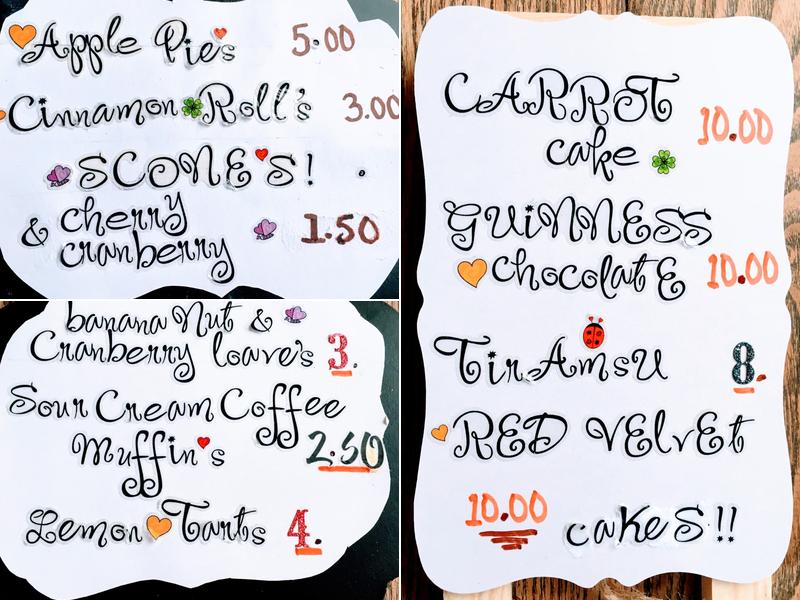 Apple Pie's 5.00
Cinnamon Roll's 3.00
SCONE'S! .
& cherry
cranberry 1.50
banana Nut &
Cranberry loave's 3.
Sour Cream Coffee
Muffin's 2.50
Lemon Tarts 4.
CARROT
cake 10.00
GUiNNESS
chocolatE 10.00
TirAmsU 8.
RED VElvEt
10.00 cakeS!!